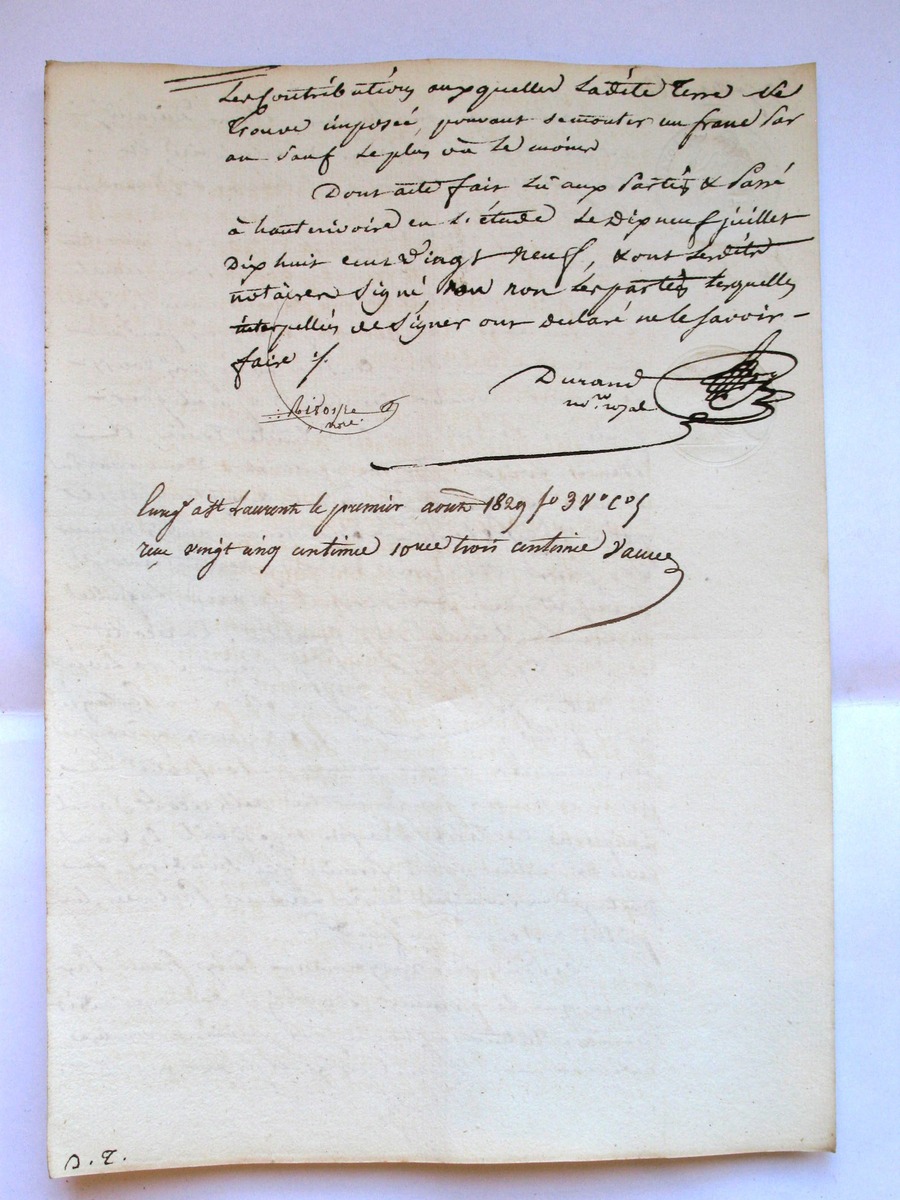 Les Contributions auxquelles Ladite Terre Se
Trouve imposée, pouvant se monter un franc Par
an Sauf Le plus ou Le moins
Dont acte fait Lu aux Parties & Passé
à hauterivoire en L'étude Le Dix neuf juillet
Dix huit cent Vingt neuf, & ont Lesdits
notaires Signé, non Les parties Lesquelles
interpellées de Signer ont declaré ne le Savoir -
faire ./.
Durand
nore. royal
nore.
Enregé à St Laurent le premier août 1829 fo 3 Vo Co 5
reçu vingt cinq centimes trois centimes
D. T.